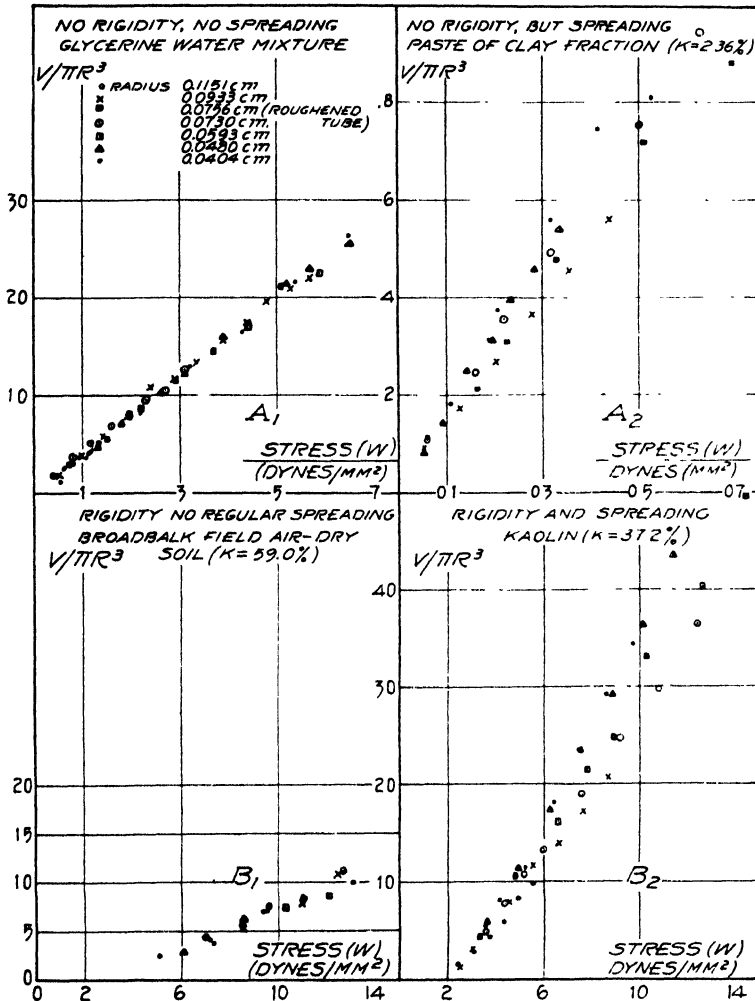 NO RIGIDITY, NO SPREADING
GLYCERINE WATER MIXTURE
V/πR³
RADIUS 0.1151 cm
0.0933 cm
0.0756 cm (ROUGHENED TUBE)
0.0730 cm.
0.0593 cm
0.0480 cm
0.0404 cm
30
20
10
0
1
3
5
7
A₁
STRESS (W)
(DYNES/MM²)
NO RIGIDITY, BUT SPREADING
PASTE OF CLAY FRACTION (K=2.36%)
V/πR³
.8
.6
.4
.2
01
03
05
07
A₂
STRESS (W)
DYNES (MM²)
RIGIDITY NO REGULAR SPREADING
BROADBALK FIELD AIR-DRY
SOIL (K=59.0%)
V/πR³
20
15
10
5
0
0
2
6
10
14
B₁
STRESS (W)
(DYNES/MM²)
RIGIDITY AND SPREADING
KAOLIN (K=37.2%)
V/πR³
40
30
20
10
2
6
10
14
B₂
STRESS (W)
(DYNES/MM²)